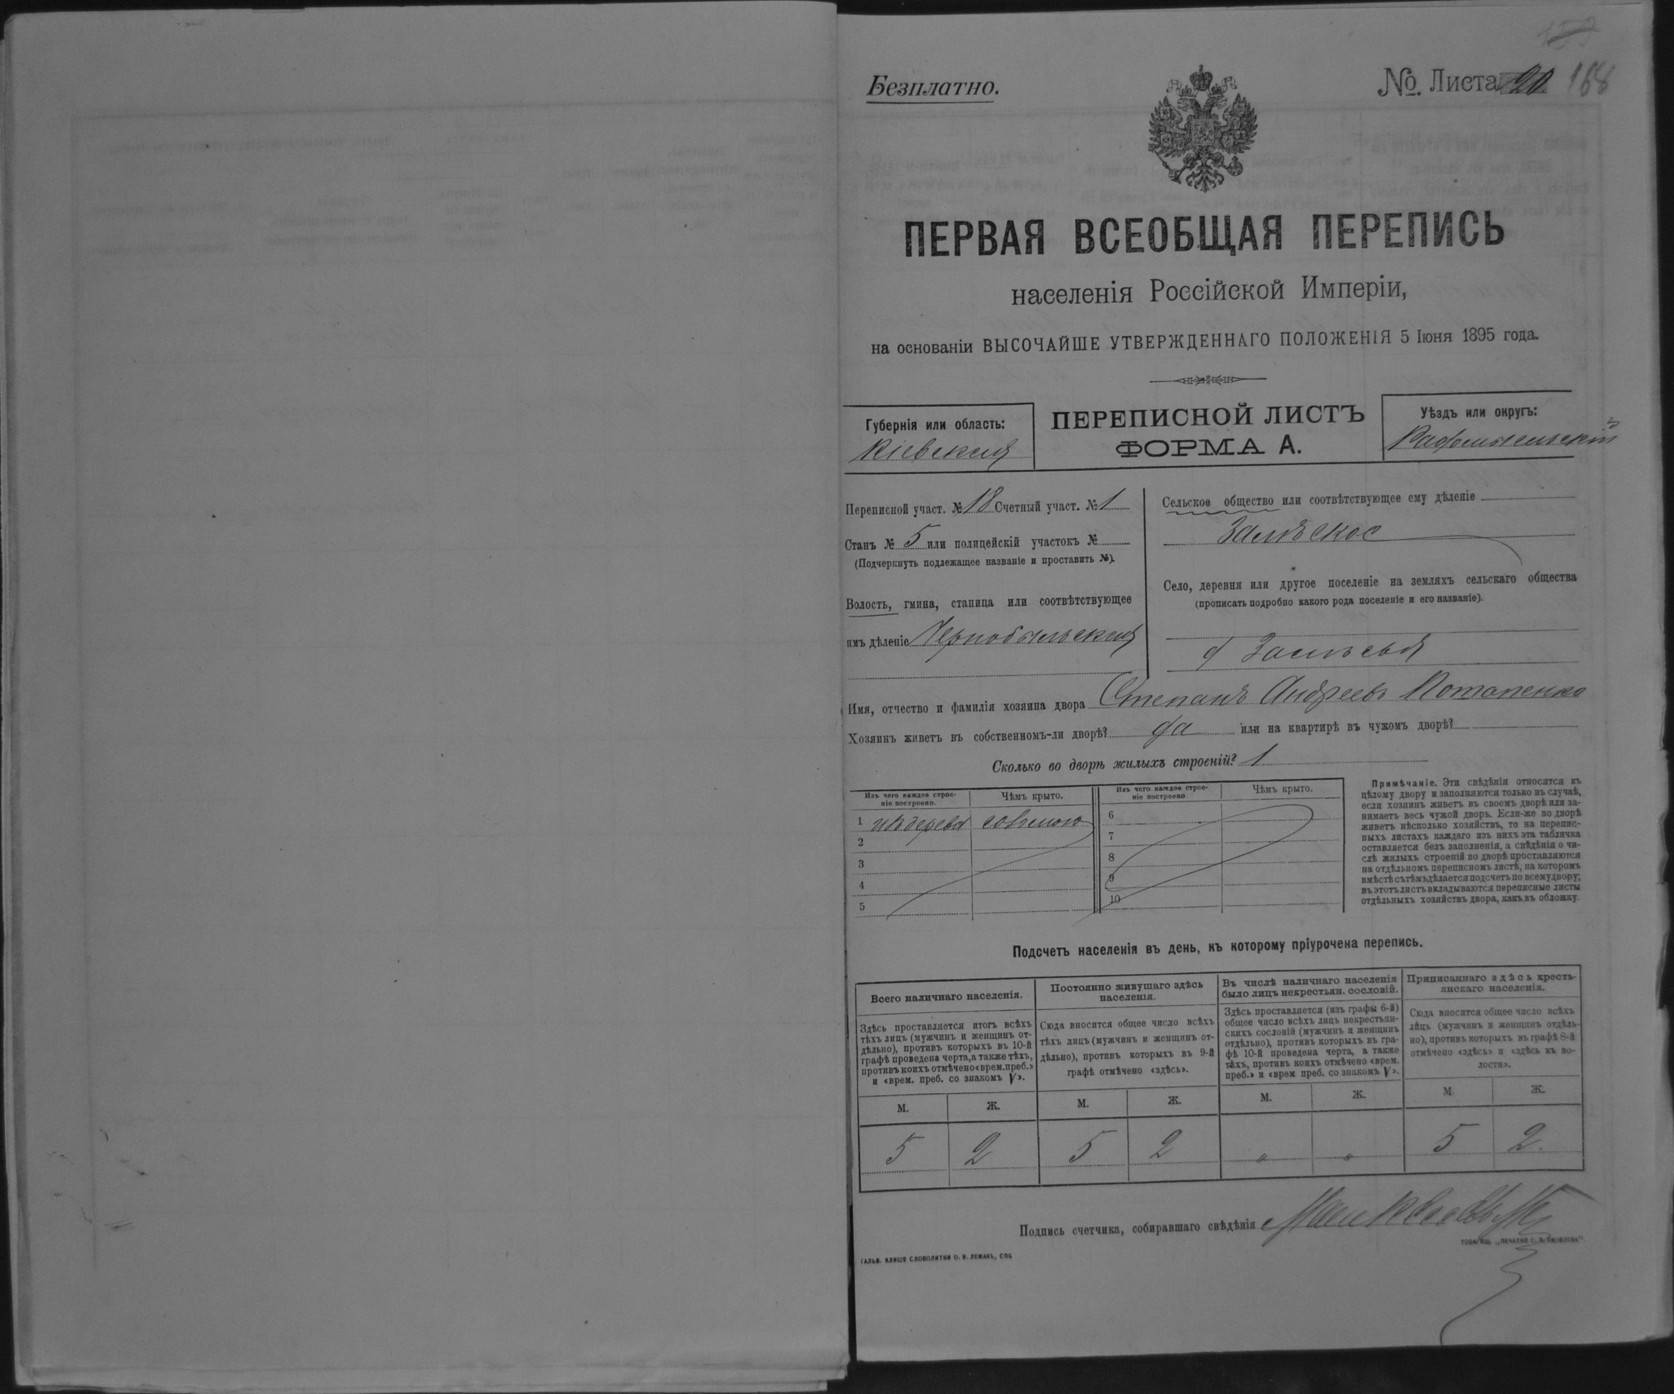 Безплатно.
№ Листа 20 168
ПЕРВАЯ ВСЕОБЩАЯ ПЕРЕПИСЬ
населенія Россійской Имперіи,
на основаніи ВЫСОЧАЙШЕ УТВЕРЖДЕННАГО ПОЛОЖЕНІЯ 5 Іюня 1895 года.
Губернія или область:
Кіевская
ПЕРЕПИСНОЙ ЛИСТЪ
ФОРМА А.
Уѣздъ или округъ:
Радомысльскій
Переписной участ. № 18 Счетный участ. № 1
Станъ № 5 или полицейскій участокъ №
(Подчеркнуть подлежащее названіе и проставить №).
Волость, гмина, станица или соотвѣтствующее
имъ дѣленіе Чернобыльская
Сельское общество или соотвѣтствующее ему дѣленіе
Залѣское
Село, деревня или другое поселеніе на земляхъ сельскаго общества
(прописать подробно какого рода поселеніе и его названіе).
д Залѣсья
Имя, отчество и фамилія хозяина двора Степанъ Андреевъ Потапенко
Хозяинъ живетъ въ собственномъ-ли дворѣ? да или на квартирѣ въ чужомъ дворѣ?
Сколько во дворѣ жилыхъ строеній? 1
Изъ чего каждое строе-
ніе построено.
Чѣмъ крыто.
1 изъ дерева соломою
2
3
4
5
Изъ чего каждое строе-
ніе построено
Чѣмъ крыто.
6
7
8
9
10
Примѣчаніе. Эти свѣдѣнія относятся къ
цѣлому двору и заполняются только въ случаѣ,
если хозяинъ живетъ въ своемъ дворѣ или за-
нимаетъ весь чужой дворъ. Если-же во дворѣ
живетъ нѣсколько хозяйствъ, то на перепис-
ныхъ листахъ каждаго изъ нихъ эта табличка
оставляется безъ заполненія, а свѣдѣнія о чи-
слѣ жилыхъ строеній во дворѣ проставляются
на отдѣльномъ переписномъ листѣ, на которомъ
вмѣстѣ съ тѣмъ дѣлается подсчетъ по всему двору;
въ этотъ листъ вкладываются переписные листы
отдѣльныхъ хозяйствъ двора, какъ въ обложку.
Подсчетъ населенія въ день, къ которому пріурочена перепись.
Всего наличнаго населенія.
Здѣсь проставляется итогъ всѣхъ
тѣхъ лицъ (мужчинъ и женщинъ от-
дѣльно), противъ которыхъ въ 10-й
графѣ проведена черта, а также тѣхъ,
противъ коихъ отмѣчено «врем. преб.»
и «врем. преб. со знакомъ V».
М. Ж.
5 2
Постоянно живущаго здѣсь
населенія.
Сюда вносится общее число всѣхъ
тѣхъ лицъ (мужчинъ и женщинъ от-
дѣльно), противъ которыхъ въ 9-й
графѣ отмѣчено «здѣсь».
М. Ж.
5 2
Въ числѣ наличнаго населенія
было лицъ некрестьян. сословій.
Здѣсь проставляется (изъ графы 6-й)
общее число всѣхъ лицъ некрестьян-
скихъ сословій (мужчинъ и женщинъ
отдѣльно), противъ которыхъ въ гра-
фѣ 10-й проведена черта, а также
тѣхъ, противъ коихъ отмѣчено «врем.
преб.» и «врем преб. со знакомъ V».
М. Ж.
" "
Приписаннаго здѣсь кресть-
янскаго населенія.
Сюда вносится общее число всѣхъ
лицъ (мужчинъ и женщинъ отдѣль-
но), противъ которыхъ въ графѣ 8-й
отмѣчено «здѣсь» и «здѣсь къ во-
лости».
М. Ж.
5 2.
Подпись счетчика, собиравшаго свѣдѣнія
ГАЛЬВ. КЛИШЕ СЛОВОЛИТНИ О. И. ЛЕМАНЪ, СПБ